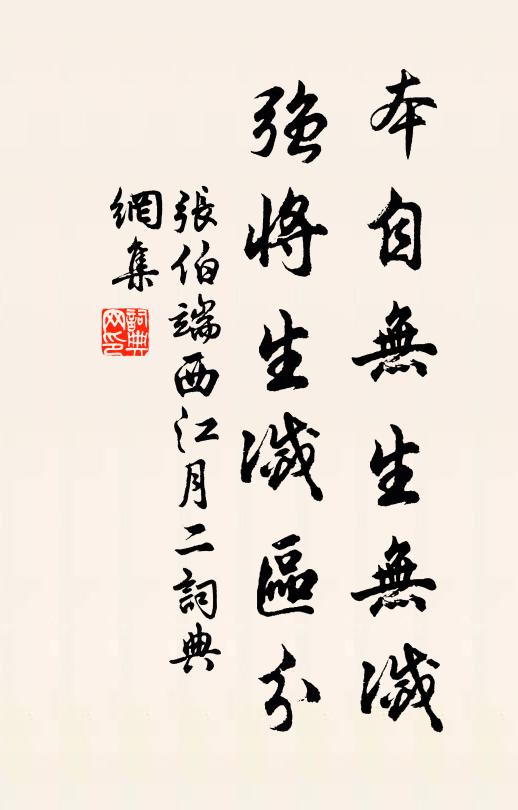 本自無生無滅
強將生滅區分
張伯端西江月二詞典
網集
詞典
网印